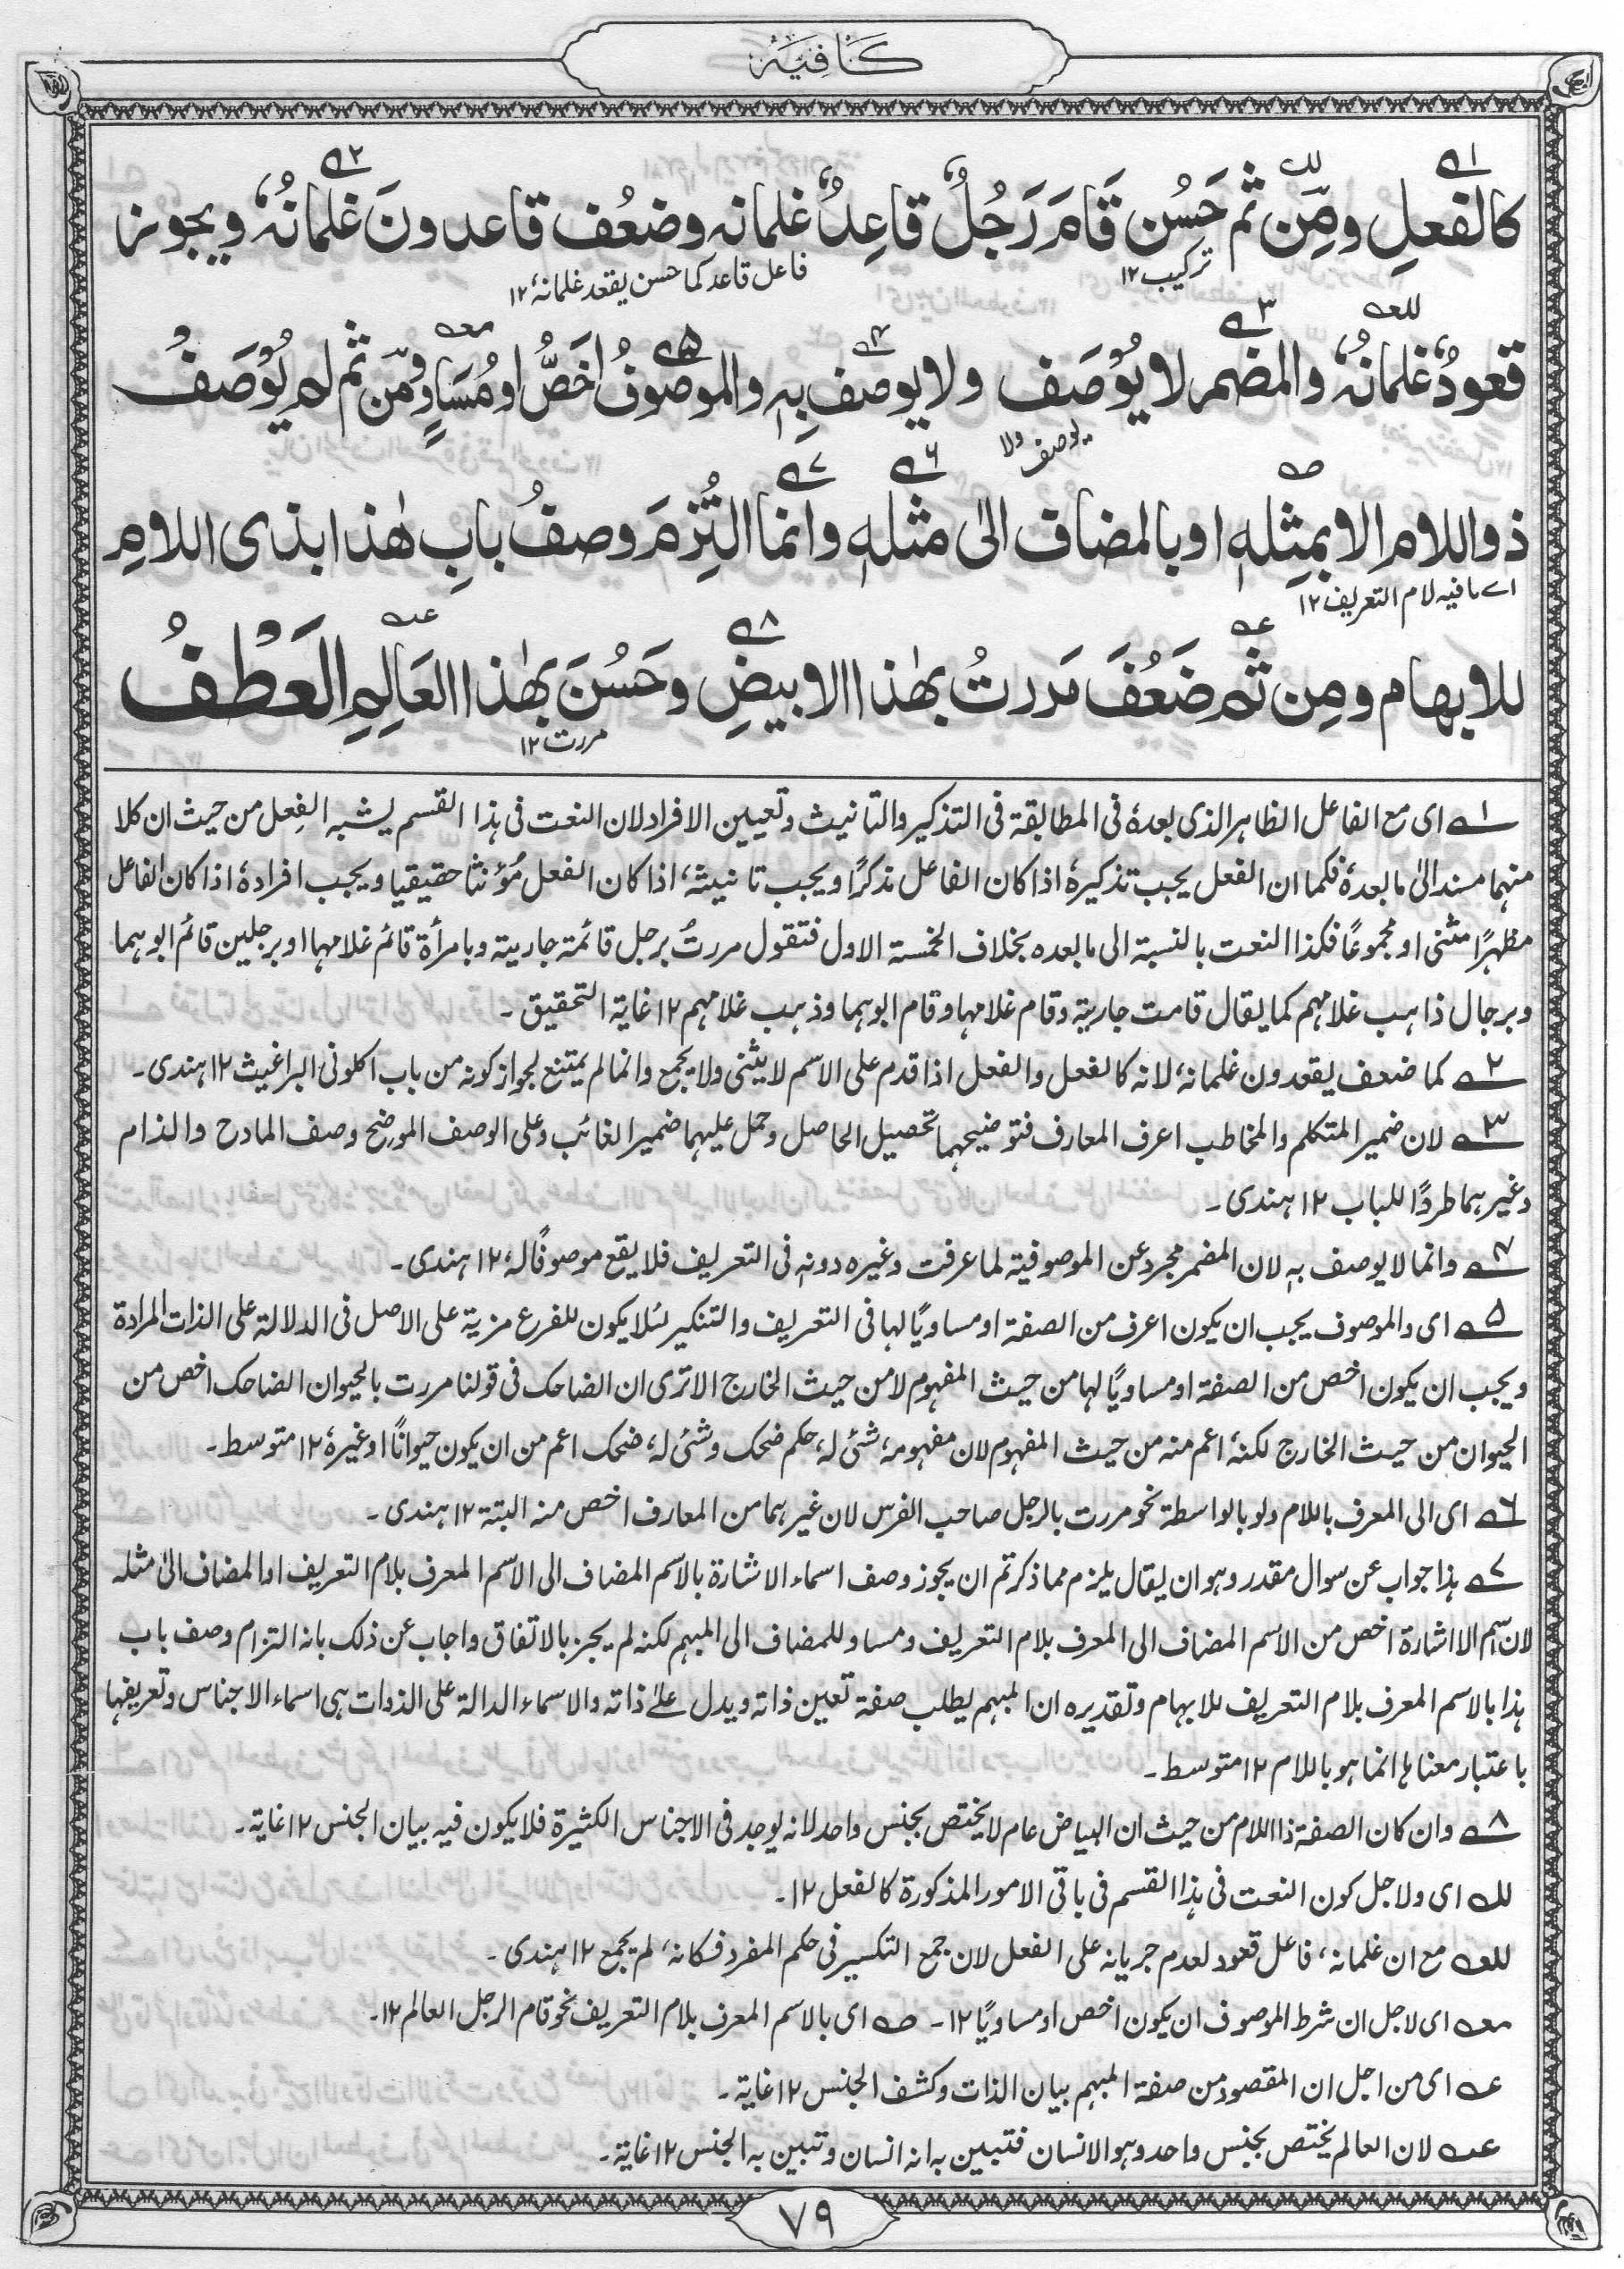 كَافِيَه
كالفعلِ ومِن ثم حَسُن قَامَ رَجُلٌ قاعِدٌ غلمانه وضعُف قاعدونَ غلمانُهٗ ويجوز
تركيب ١٢
فاعل قاعد كما حسن يقعد غلمانهٗ ١٢
قعودٌ غلمانُهٗ والمضمر لا يُوْصَف ولا يوصف بِهٖ والموصوفُ اَخَصُّ او مُسَاوٍ ومِن ثم لم يُوْصَفْ
يوصف ولا
ذو اللامِ الا بمِثلِهٖ او بالمضاف الىٰ مثلهٖ وانما التُزِمَ وصفُ بابِ هٰذا بذى اللامِ
اے ما فيه لام التعريف ١٢
للابهام ومِن ثم ضَعُفَ مَررتُ بهٰذا الابيضِ وحَسُنَ بهٰذا العَالِمِ العَطْفُ
مررت ١٢
١ اى مع الفاعل الظاهر الذى بعدهٗ فى المطابقة فى التذكير والتانيث وتعيين الافراد لان النعت فى هذا القسم يشبه الفعل من حيث ان كلا
منهما مسند الىٰ ما بعدهٗ فكما ان الفعل يجب تذكيرهٗ اذا كان الفاعل مذكرًا ويجب تانيثهٗ اذا كان الفعل مُؤنثا حقيقيا ويجب افرادهٗ اذا كان الفاعل
مظهرًا مثنى او مجموعًا فكذا النعت بالنسبة الى ما بعده بخلاف الخمسة الاول فتقول مررتُ برجل قائمة جارية وبامرأة قائم غلامها او برجلين قائم ابوهما
وبرجال ذاهب غلامهم كما يقال قامت جارية وقام غلامها وقام ابوهما وذهب غلامهم ١٢ غاية التحقيق۔
٢ كما ضعف يقعدون غلمانهٗ لانه كالفعل والفعل اذا قدم على الاسم لا يثنى ولا يجمع وانما لم يمتنع لجواز كونه من باب اكلونى البراغيث ١٢ هندى۔
٣ لان ضمير المتكلم والمخاطب اعرف المعارف فتوضيحهما تحصيل الحاصل وحمل عليهما ضمير الغائب وعلى الوصف الموضح وصف المادح والذام
وغيرهما طردًا للباب ١٢ هندى۔
٤ وانما لا يوصف بهٖ لان المضمر مجرد عن الموصوفية لما عرفت وغيره دونهٖ فى التعريف فلا يقع موصوفًا لهٗ ١٢ هندى۔
٥ اى والموصوف يجب ان يكون اعرف من الصفة او مساويًا لها فى التعريف والتنكير لئلا يكون للفرع مزية على الاصل فى الدلالة على الذات المرادة
ويجب ان يكون اخص من الصفة او مساويًا لها من حيث المفهوم لا من حيث الخارج الا ترى ان الضاحك فى قولنا مررت بالحيوان الضاحك اخص من
الحيوان من حيث الخارج لكنهٗ اعم منه من حيث المفهوم لان مفهومهٗ شئ لهٗ حكم ضحك وشئ لهٗ ضحك اعم من ان يكون حيوانًا او غيرهٗ ١٢ متوسط۔
٦ اى الى المعرف باللام ولو بالواسطة نحو مررت بالرجل صاحب الفرس لان غيرهما من المعارف اخص منه البتة ١٢ هندى۔
٧ هذا جواب عن سوال مقدر وهو ان يقال يلزم مما ذكرتم ان يجوز وصف اسماء الاشارة بالاسم المضاف الى الاسم المعرف بلام التعريف او المضاف الىٰ مثله
لان اسم الاشارة اخص من الاسم المضاف الى المعرف بلام التعريف ومساو للمضاف الى المبهم لكنه لم يجز بالاتفاق واجاب عن ذلك بانه التزام وصف باب
هذا بالاسم المعرف بلام التعريف للابهام وتقديره ان المبهم يطلب صفة تعين ذاته ويدل علےٰ ذاته والاسماء الدالة على الذوات هى اسماء الاجناس وتعريفها
باعتبار معناها انما هو باللام ١٢ متوسط۔
٨ وان كان الصفة ذا اللام من حيث ان البياض عام لا يختص بجنس واحد لانه يوجد فى الاجناس الكثيرة فلا يكون فيه بيان الجنس ١٢ غاية۔
لله اى ولاجل كون النعت فى هذا القسم فى باقى الامور المذكورة كالفعل ١٢۔
للعه مع ان غلمانهٗ فاعل قعود لعدم جريانه على الفعل لان جمع التكسير فى حكم المفرد فكانهٗ لم يجمع ١٢ هندى۔
معه اى لاجل ان شرط الموصوف ان يكون اخص او مساويًا ١٢۔ صه اى بالاسم المعرف بلام التعريف نحو قام الرجل العالم ١٢۔
عه اى من اجل ان المقصود من صفة المبهم بيان الذات وكشف الجنس ١٢ غاية۔
عه لان العالم يختص بجنس واحد وهو الانسان فتبين به انه انسان وتبين به الجنس ١٢ غاية۔
٧٩